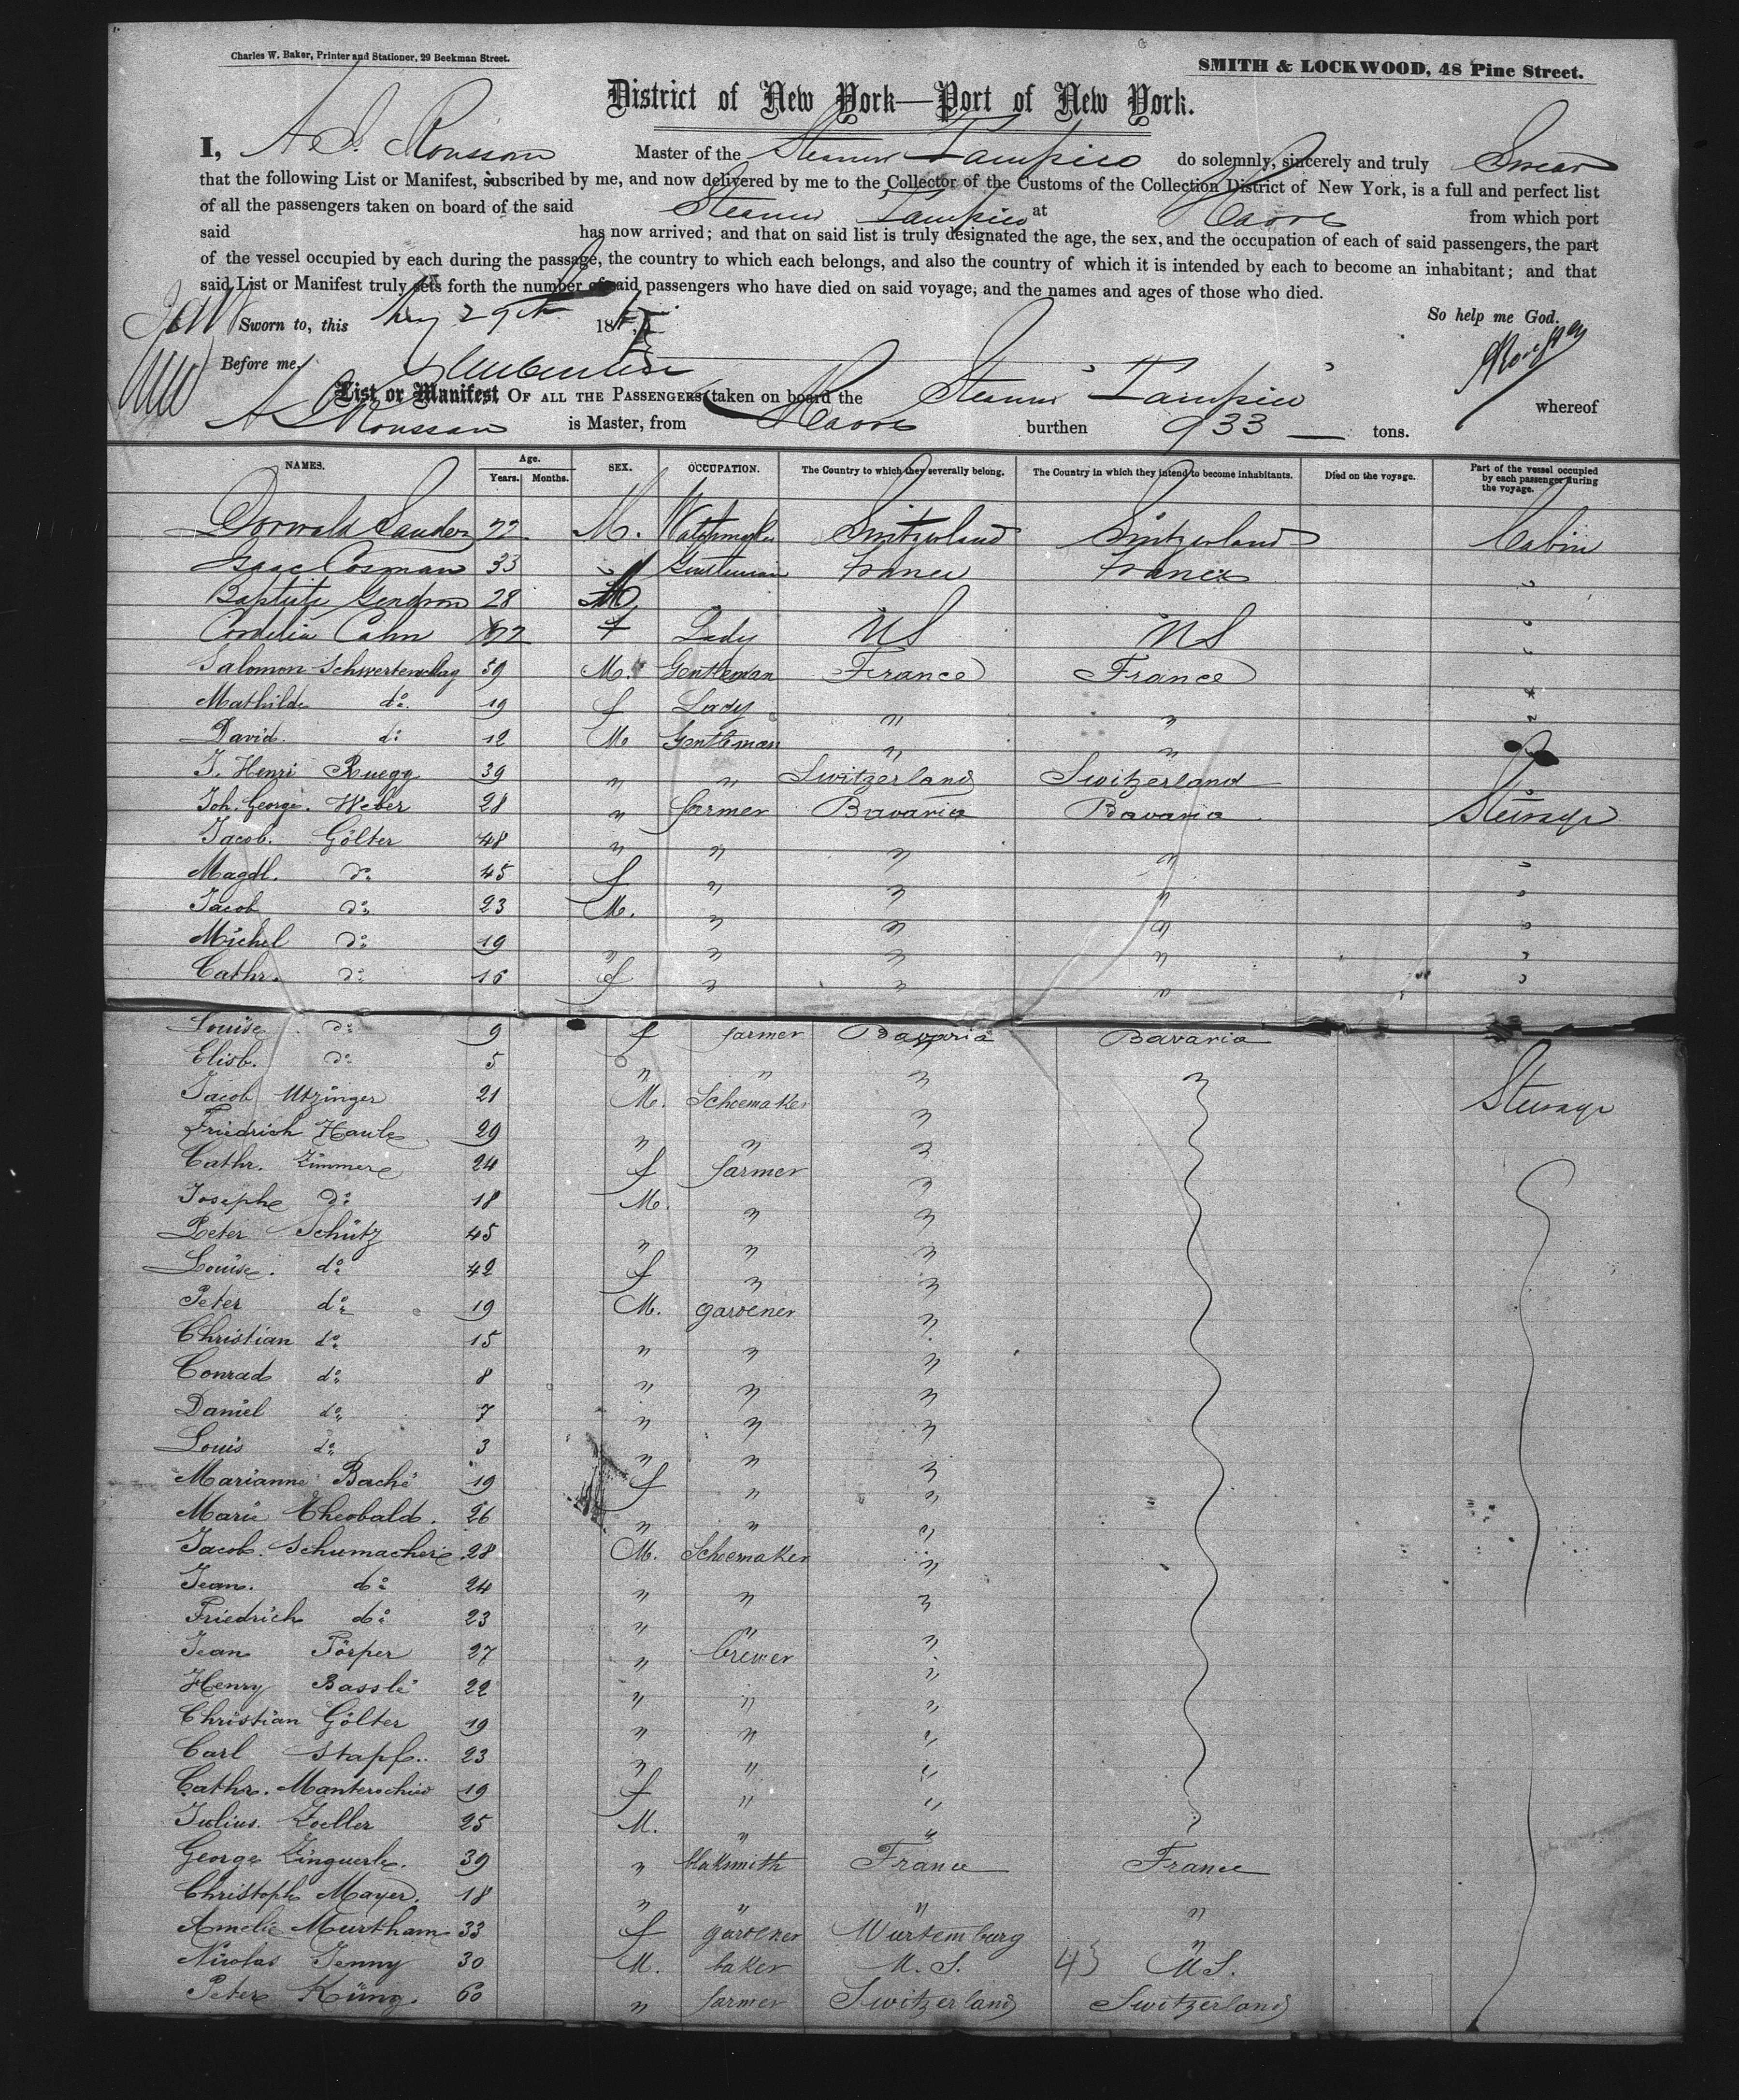 Charles W. Baker, Printer and Stationer, 29 Beekman Street.
SMITH & LOCKWOOD, 48 Pine Street.
District of New York—Port of New York.
I, A. S. Master of the Steamer Tampico do solemnly, sincerely and truly Swear
that the following List or Manifest, subscribed by me, and now delivered by me to the Collector of the Customs of the Collection District of New York, is a full and perfect list
of all the passengers taken on board of the said Steamer Tampico at Havre from which port
said has now arrived; and that on said list is truly designated the age, the sex, and the occupation of each of said passengers, the part
of the vessel occupied by each during the passage, the country to which each belongs, and also the country of which it is intended by each to become an inhabitant; and that
said List or Manifest truly sets forth the number of said passengers who have died on said voyage, and the names and ages of those who died.
So help me God.
Sworn to, this 29th 18
Before me,
List or Manifest OF ALL THE PASSENGERS taken on board the Steamer Tampico whereof
is Master, from Havre burthen 933 tons.
NAMES. Age. Years. Months. SEX. OCCUPATION. The Country to which they severally belong. The Country in which they intend to become inhabitants. Died on the voyage. Part of the vessel occupied by each passenger during the voyage.
22 M. Watchmaker Switzerland Switzerland Cabin
Isaac Cosman 33 " Gentleman France France "
Baptiste Gendron 28 M "
Cordelia Cahn f Lady US US "
Salomon Schwertenschlag 59 M. Gentleman France France "
Mathilde do 19 f Lady " " "
David do 12 M Gentleman " " "
J. Henri Ruegg 39 " " Switzerland Switzerland "
Joh. George Weber 28 " farmer Bavaria Bavaria Steerage
Jacob Gölter 48 " " " " "
Magdl. do 45 f " " " "
Jacob do 23 M. " " " "
Michel do 19 " " " " "
Cathr. do 16 f " " " "
Louise do 9 f farmer Bavaria Bavaria
Elisb. do 5 " " " " Steerage
Jacob Utzinger 21 M. Schoemaker "
Friedrich Haule 29 " " "
Cathr. Zimmer 24 f farmer "
Josephe do 18 M. " "
Peter Schütz 45 " " "
Louise do 42 f " "
Peter do 19 M. gardener "
Christian do 15 " " "
Conrad do 8 " " "
Daniel do 7 " " "
Louis do 3 " " "
Marianne Baché 19 f " "
Marie Theobald 26 " " "
Jacob Schumacher 28 M. Schoemaker "
Jean do 24 " " "
Friedrich do 23 " " "
Jean Pörper 27 " brewer "
Henry Basslé 22 " " "
Christian Gölter 19 " " "
Carl Stapf 23 " " "
Cathr. 19 f " "
Julius Zoeller 25 M. " "
George Zinguerle 39 " blaksmith France France
Christoph Mayer 18 " " " "
Amelie Murtham 33 f gardener Wurtemburg "
Nicolas Jenny 30 M. baker U.S. 43 U.S.
Peter Küng 60 " farmer Switzerland Switzerland